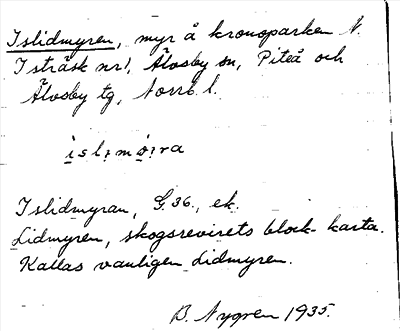 Islidmyren, myr å kronoparken N.
Isträsk nr 1, Älvsby sn, Piteå och
Älvsby tg, Norrb. l.
ìslꞏmø̣ꞏra
Islidmyran, G. 36., ek.
Lidmyren, skogsrevirets block-karta.
Kallas vanligen Lidmyren.
B. Nygren 1935.